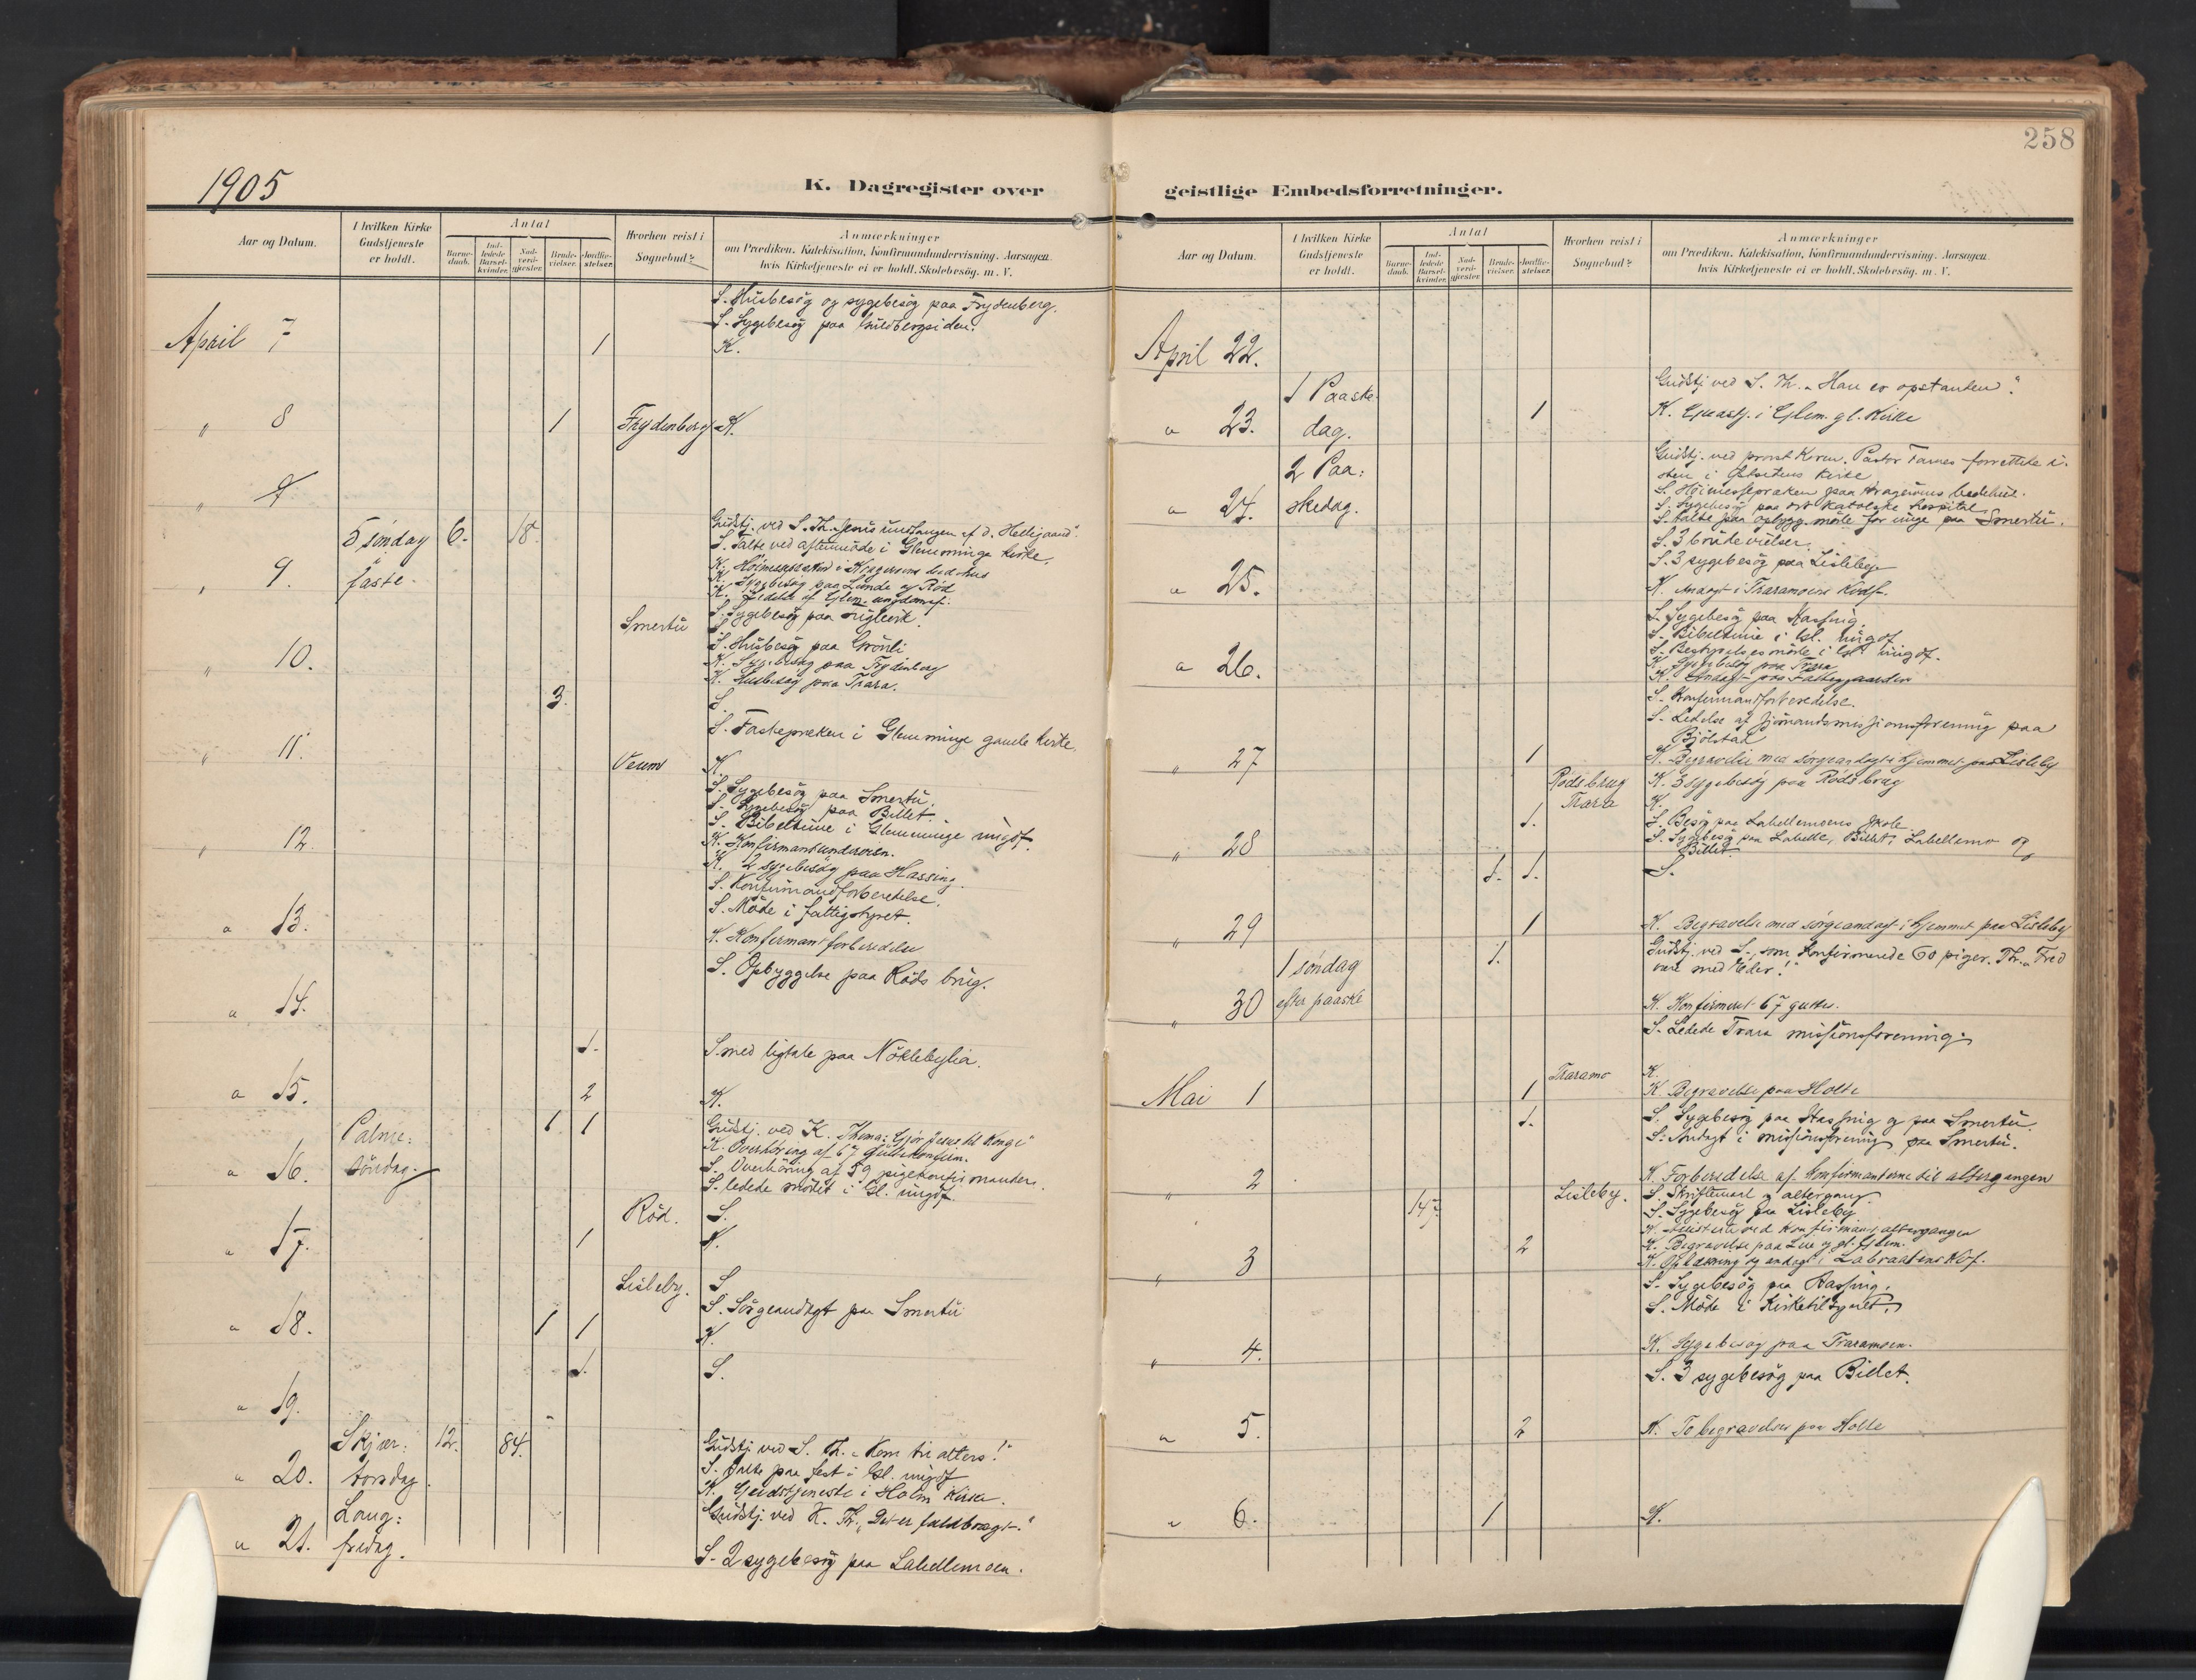 258
1905
K. Dagregister over
geistlige Embedsforretninger.
Aar og Datum.
I hvilken Kirke Gudstjeneste er holdt.
Antal
Barne-daab.
Ind-ledede Barsel-kvinder.
Nad-verd-gjester.
Brude-vielser.
Jordfæ-stelser.
Hvorhen reist i Sognebud?
Anmærkninger
om Prædiken. Katekisation, Konfirmandundervisning. Aarsagen
hvis Kirketjeneste ei er holdt. Skolebesøg. m. V.
S. Husbesøg og sygebesøg paa Frydenberg.
S. Sygebesøg paa
April 7 1 K.
" 8 1 Frydenberg K.
5 søndag 6. 18. Gudstj. ved S. Th. Jesus undfangen af d. Helligaand"
S. Talte ved aftenmøde i Glemminge kirke.
" 9. faste.
K. Sygebesøg paa Lunde og Rød
K. Ledelse af Glem. ungdomsf.
Smertu S. Sygebesøg paa
" 10. S. Husbesøg paa Grønli
K. Sygebesøg paa Frydenberg
K. Husbesøg paa Trara.
3. S.
S. Fastepræken i Glemminge gamle kirke
" 11.
Veum K.
S. Sygebesøg paa Smertu.
S. Sygebesøg paa Billet.
" 12. S. Bibeltime i Glemminge ungdf.
K. Konfirmantundervisn.
K. 2 sygebesøg paa Hassing.
S. Konfirmandforberedelse.
" 13. S. Møde i fattigstyret.
K. Konfirmantforberedelse
S. Opbyggelse paa Røds brug.
" 14.
1. S. med ligtale paa Nøklebylia.
" 15. 2 K.
Palme: 1 1 Gudstj. ved K. Thema: Gjør Jesus til Konge"
K. Overhøring af 67 guttekonfirm.
" 16. søndag. S. Overhøring af 59 pigekonfirmander.
S. ledede mødet i Gl. ungdf.
Rød. S.
" 17. 1 K.
Lisleby. S.
S. Sørgeandagt paa Smertu
" 18. 1 1 K.
1. S.
" 19.
Skjær: 12. 84. Gudstj. ved S. Th. "Kom til alters!"
" 20. torsdag. S. Talte paa fest i Gl. ungdf
K. Gudstjeneste i Holm Kirke.
Lang: Gudstj. ved K. Th. "Det er fuldbragt."
" 21. fredag.
S. 2 sygebesøg paa Labedlemoen.
Aar og Datum.
I hvilken Kirke Gudstjeneste er holdt.
Antal
Barne-daab.
Ind-ledede Barsel-kvinder.
Nad-verd-gjester.
Brude-vielser.
Jordfæ-stelser.
Hvorhen reist i Sognebud?
Anmærkninger
om Prædiken. Katekisation, Konfirmandundervisning. Aarsagen
hvis Kirketjeneste ei er holdt. Skolebesøg. m. V.
April 22.
1 Paaske- Gudstj. ved S. Th. "Han er opstanden".
" 23. dag. 1 K. Gudstj. i Glem. gl. Kirke
2 Paa: Gudstj. ved provst Koren. Pastor Farnes forrettede
" 24. skedag. S. Høimessepræken paa Kragerøens bedehus.
S. Sygebesøg paa det katolske hospital
S. talte paa opbygg. møde for unge paa Smertu.
S. 3 brudevielser.
S. 3 sygebesøg paa Lisleby
" 25. K. Andagt i Traramoens Kvdf.
S. Sygebesøg paa Hassing.
S. Bibeltime i Gl. ungdf
" 26. S. Bestyrelsesmøde i Gl. ungdf.
K. Sygebesøg paa Trara
K. Andagt paa Fattiggaarden
S. Konfirmandforberedelse.
S. Ledelse af sjømandsmissionsforening paa
Bjølstad
" 27 1 K. Begravelse med sørgeandagt i hjemmet paa Lisleby
Rødsbrug K. 3 sygebesøg paa Rødsbrug
Trara K.
1. S. Besøg paa Labedlemoens skole
" 28 S. Sygebesøg paa Labedle, Billet, Labedlemo og
Billet.
1. 1. S.
" 29 1 K. Begravelse med sørgeandagt i hjemmet paa Lisleby
1 søndag 1. Gudstj. ved S., som konfirmerede 60 piger. Th. "Fred
være med Eder!"
" 30 efter paaske K. Konfirmert 67 gutter.
S. Ledede Trara missionsforening.
Traramo K.
Mai 1 1 K. Begravelse paa Holte
1. S. Sygebesøg paa Hassing og paa Smertu.
S. Andagt i missionsforening paa Smertu.
" 2 K. Forberedelse af konfirmanterne til altergangen
Lisleby. 147. S. Skriftemaal og altergang.
S. Sygebesøg paa Lisleby
K. ved konfirmant altergangen
2 K. Begravelse paa Lie og gl. Glem.
" 3 K. Oplæsning og andagt i Labraatens Kvf.
S. Sygebesøg paa Hassing.
S. Møde i Kirketilsynet.
" 4. K. Sygebesøg paa Traramoen.
S. 3 sygebesøg paa Billet.
" 5. 2 K. To begravelser paa Holte
" 6. 1 K.